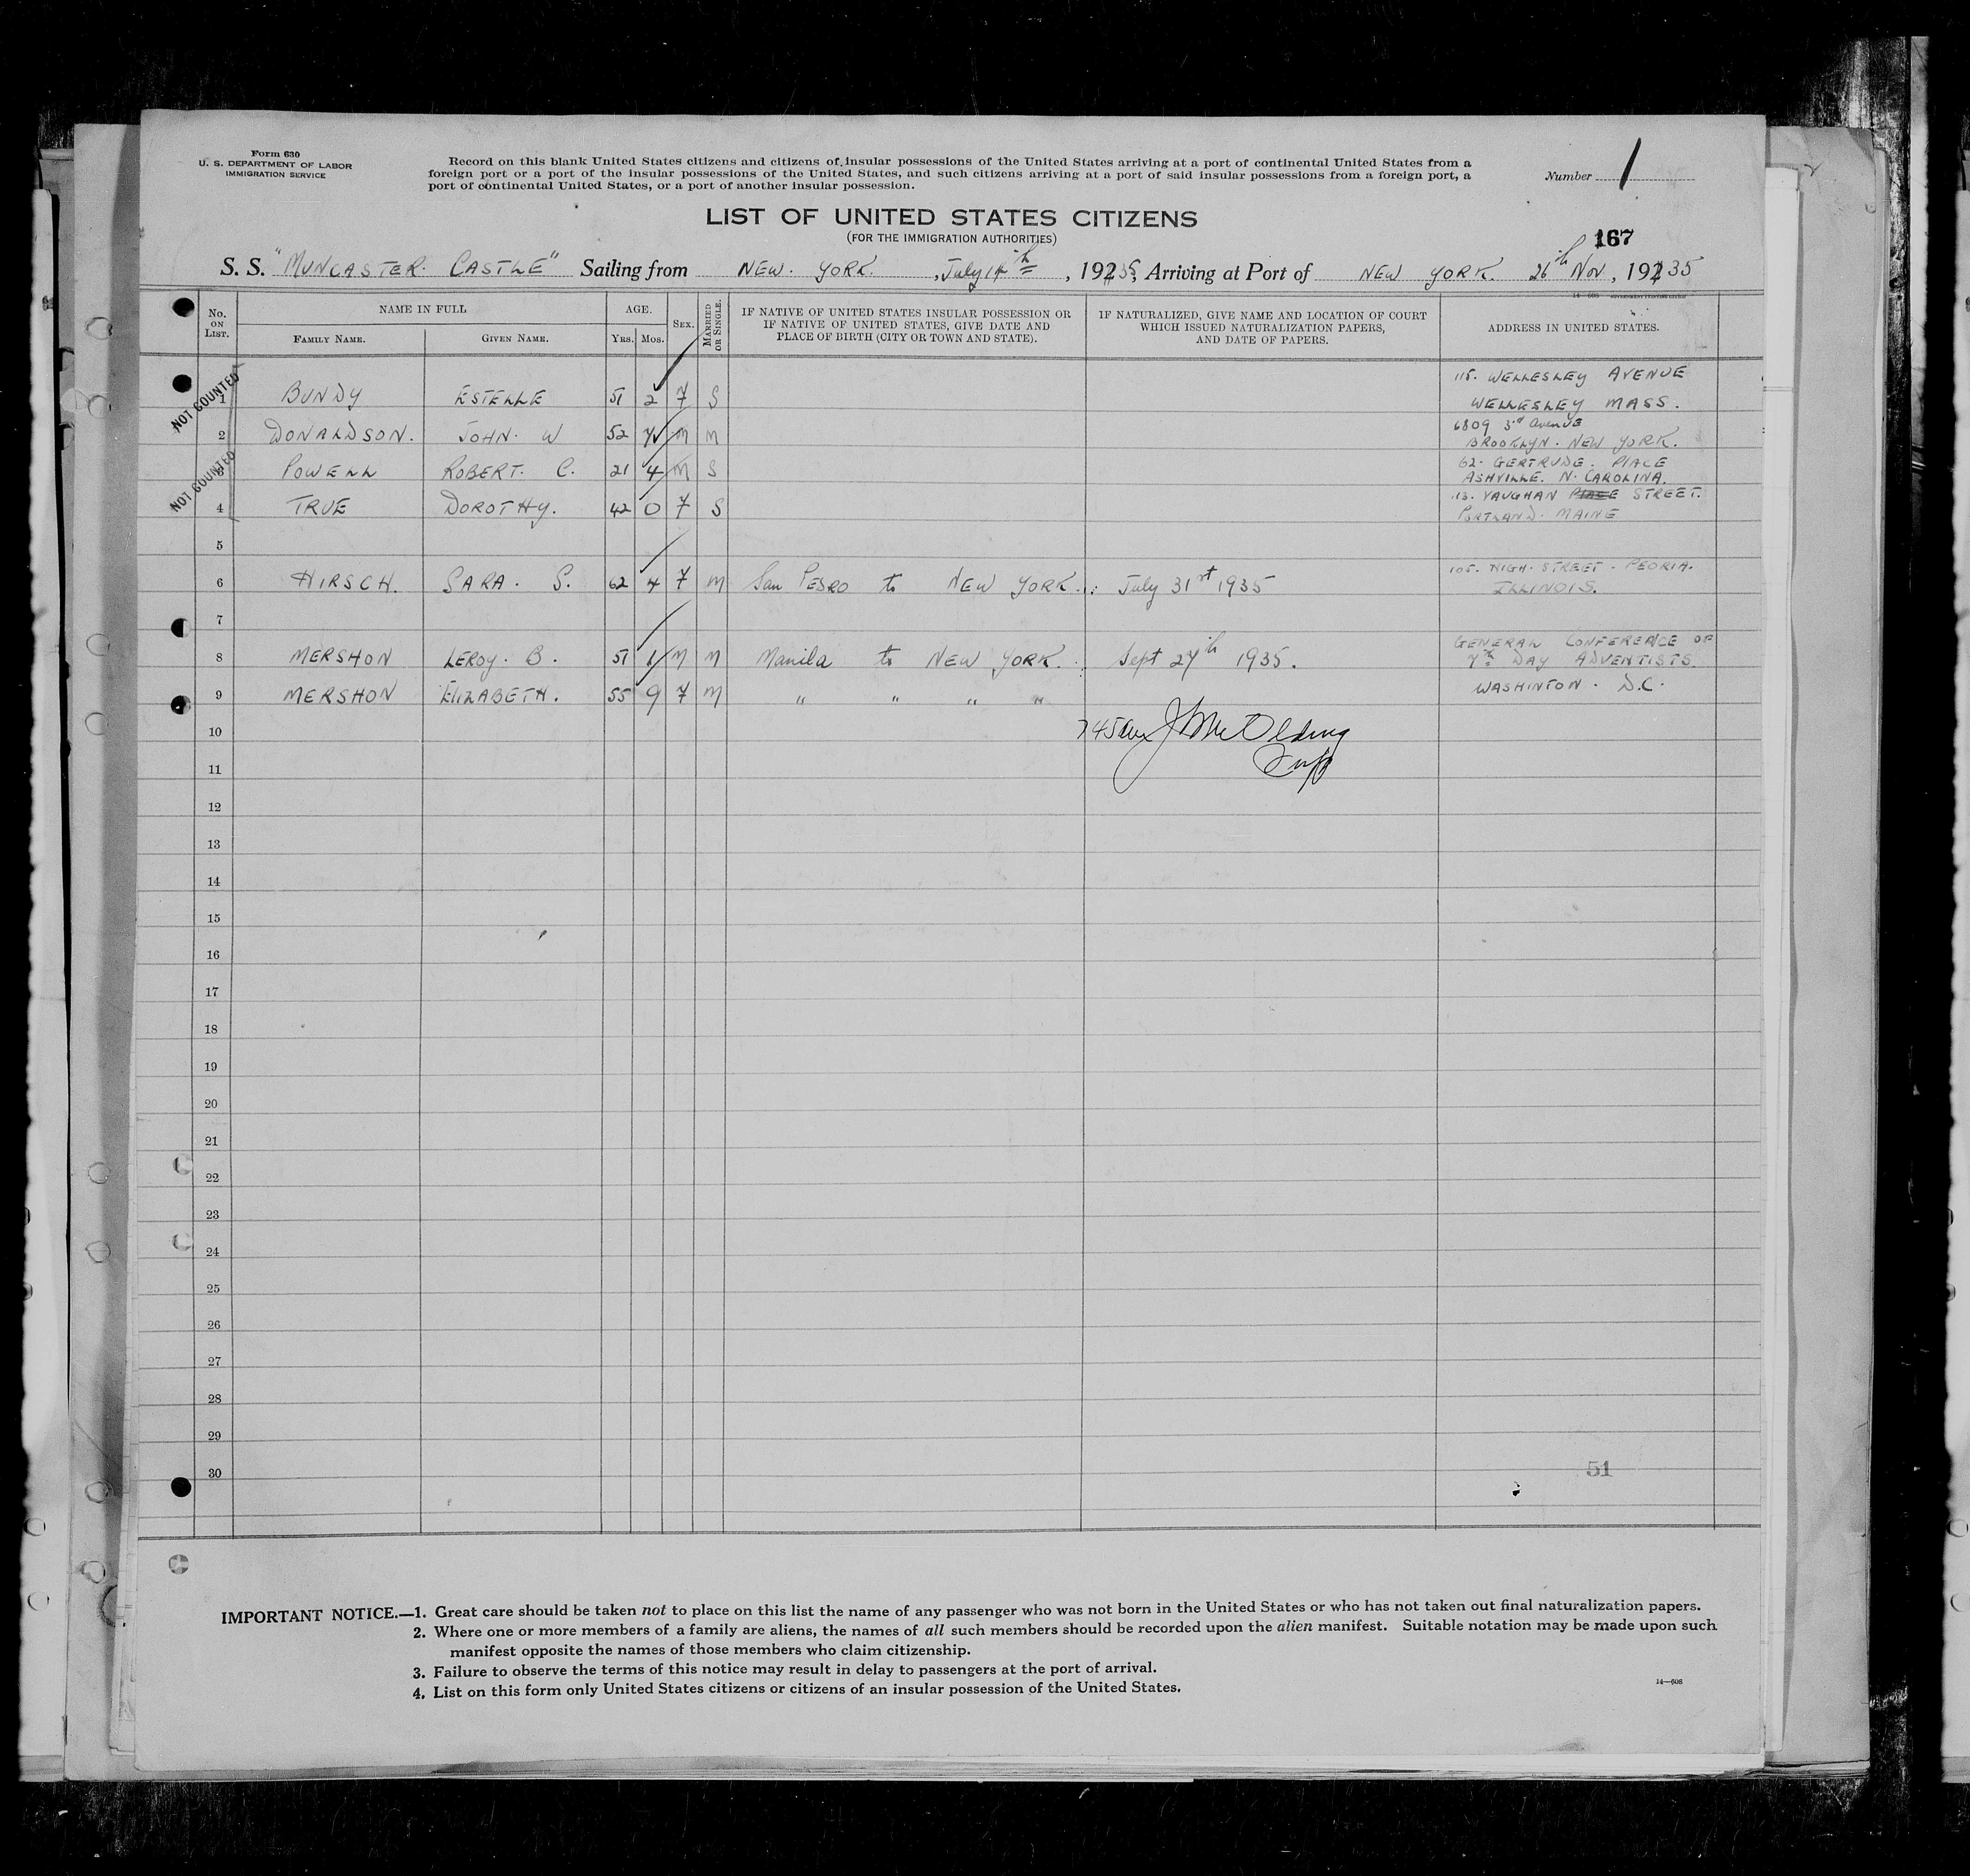 Form 630
U. S. DEPARTMENT OF LABOR
IMMIGRATION SERVICE
Record on this blank United States citizens and citizens of insular possessions of the United States arriving at a port of continental United States from a
foreign port or a port of the insular possessions of the United States, and such citizens arriving at a port of said insular possessions from a foreign port, a
port of continental United States, or a port of another insular possession.
Number 1
LIST OF UNITED STATES CITIZENS
(FOR THE IMMIGRATION AUTHORITIES)
167
S. S. "MUNCASTER CASTLE" Sailing from NEW. YORK. , July 14th , 1935, Arriving at Port of NEW YORK. 26th Nov, 1935
No. ON LIST. NAME IN FULL AGE. SEX. MARRIED OR SINGLE. IF NATIVE OF UNITED STATES INSULAR POSSESSION OR IF NATIVE OF UNITED STATES, GIVE DATE AND PLACE OF BIRTH (CITY OR TOWN AND STATE). IF NATURALIZED, GIVE NAME AND LOCATION OF COURT WHICH ISSUED NATURALIZATION PAPERS, AND DATE OF PAPERS. ADDRESS IN UNITED STATES.
FAMILY NAME. GIVEN NAME. YRS. MOS.
NOT COUNTED
1 BUNDY ESTELLE 51 2 F S 115. WELLESLEY AVENUE
WELLESLEY MASS.
2 DONALDSON. JOHN. W 52 7 M M 6809 3rd AVENUE
BROOKLYN. NEW YORK.
NOT COUNTED
3 POWELL ROBERT. C. 21 4 M S 62. GERTRUDE. PLACE
ASHVILLE. N. CAROLINA.
4 TRUE DOROTHY. 42 0 F S 113. VAUGHAN PLACE STREET.
PORTLAND. MAINE
5
6 HIRSCH. SARA. S. 62 4 F M San PEDRO to NEW YORK. : July 31st 1935 105. HIGH. STREET. PEORIA.
ILLINOIS.
7
8 MERSHON LEROY. B. 51 1 M M Manila to NEW YORK. : Sept 27th 1935. GENERAL CONFERENCE OF
7th DAY ADVENTISTS.
9 MERSHON ELIZABETH. 55 9 F M " " " " WASHINTON. D.C.
10
11
12
13
14
15
16
17
18
19
20
21
22
23
24
25
26
27
28
29
30
51
IMPORTANT NOTICE.—1. Great care should be taken not to place on this list the name of any passenger who was not born in the United States or who has not taken out final naturalization papers.
2. Where one or more members of a family are aliens, the names of all such members should be recorded upon the alien manifest. Suitable notation may be made upon such
manifest opposite the names of those members who claim citizenship.
3. Failure to observe the terms of this notice may result in delay to passengers at the port of arrival.
4. List on this form only United States citizens or citizens of an insular possession of the United States.
14—608